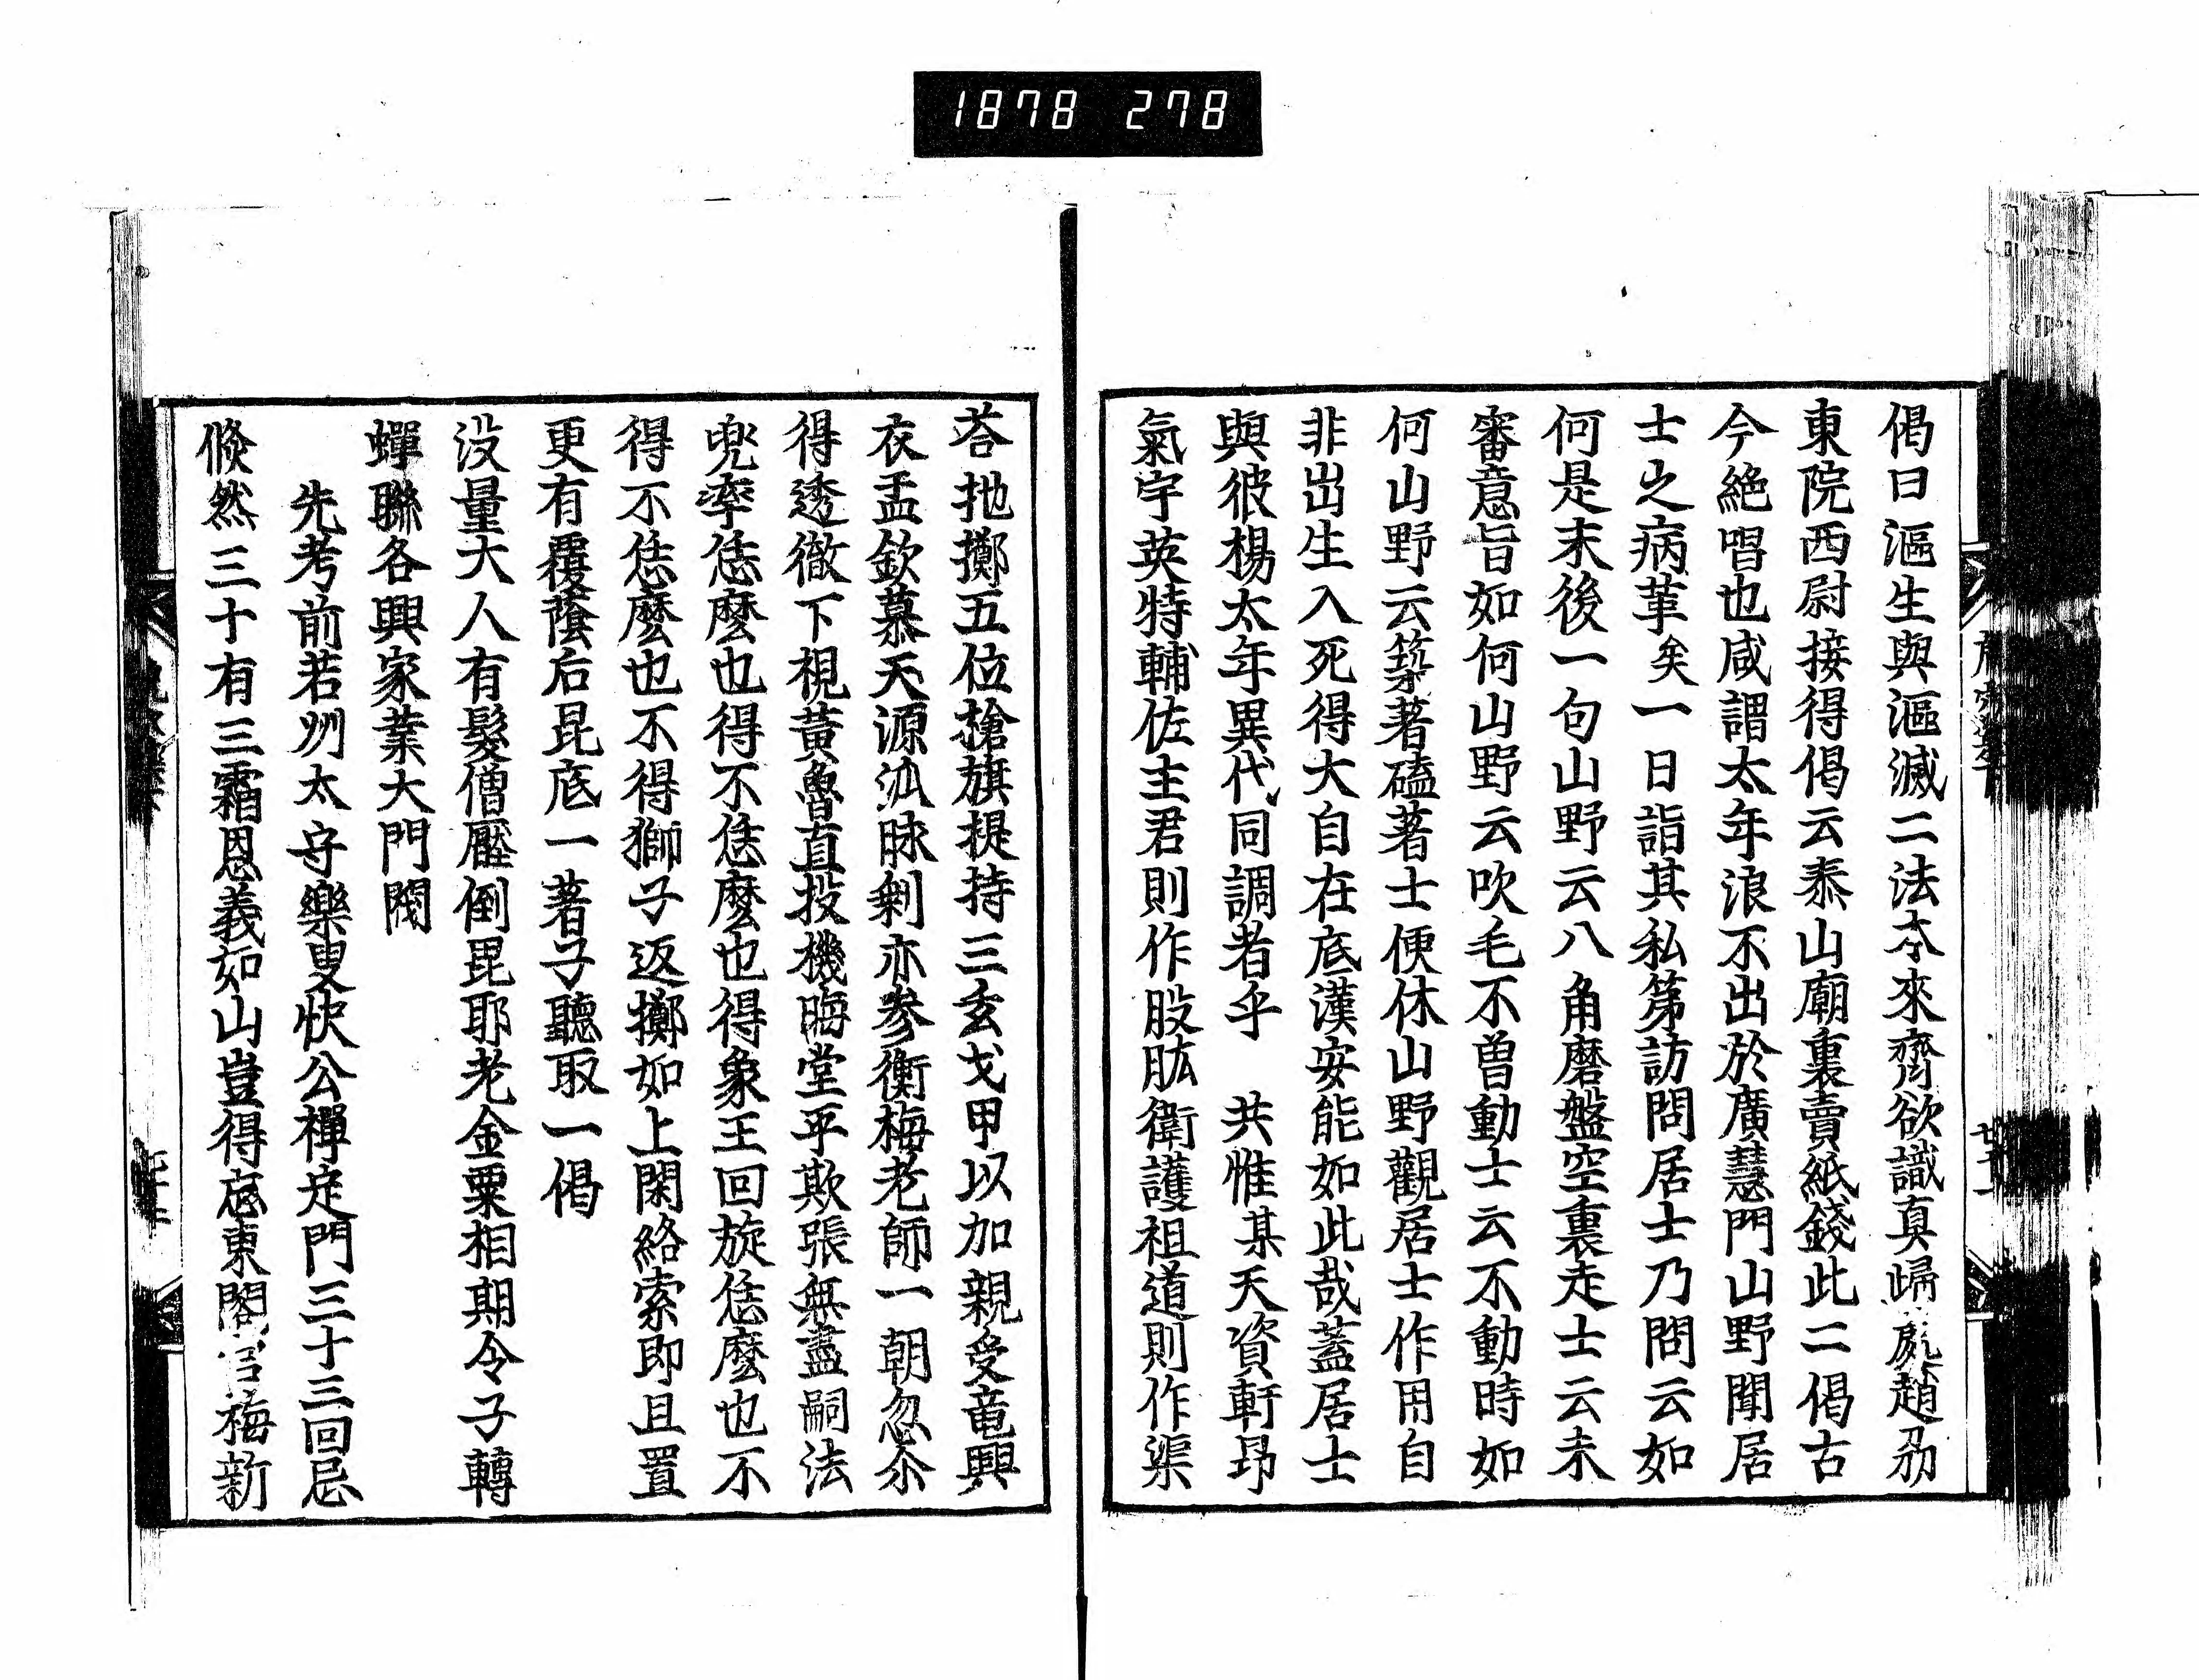 1878 278
偈曰漚生與漚滅二法夲來齊欲識真歸處趙刕
東院西尉接得偈云泰山廟裏賣紙錢此二偈古
今絶唱也咸謂太年浪不出於廣慧門山野聞居
士之病革矣一日詣其私第訪問居士乃問云如
何是末後一句山野云八角磨盤空裏走士云未
審意旨如何山野云吹毛不曽動士云不動時如
何山野云築著磕著士便休山野觀居士作用自
非出生入死得大自在底漢安能如此哉蓋居士
與彼楊太年異代同調者乎　共惟某天資軒昂
氣宇英特輔佐主君則作股肱衛護祖道則作渠
荅抛擲五位槍旗提持三玄戈甲以加親受竜興
衣盂欽慕天源泒脉剰亦参衡梅老師一朝忽尒
得透徹下視黃魯直投機晦堂平欺張無盡嗣法
兜率恁麽也得不恁麽也得象王回旋恁麽也不
得不恁麽也不得獅子返擲如上閑絡索即且置
更有覆蔭后昆底一著子聽取一偈
没量大人有髮僧壓倒毘耶老金粟相期令子轉
蟬聯各興家業大門閥
先考前若州太守樂叟快公禪定門三十三回忌
倐然三十有三霜恩義如山豈得忘東閣官梅新